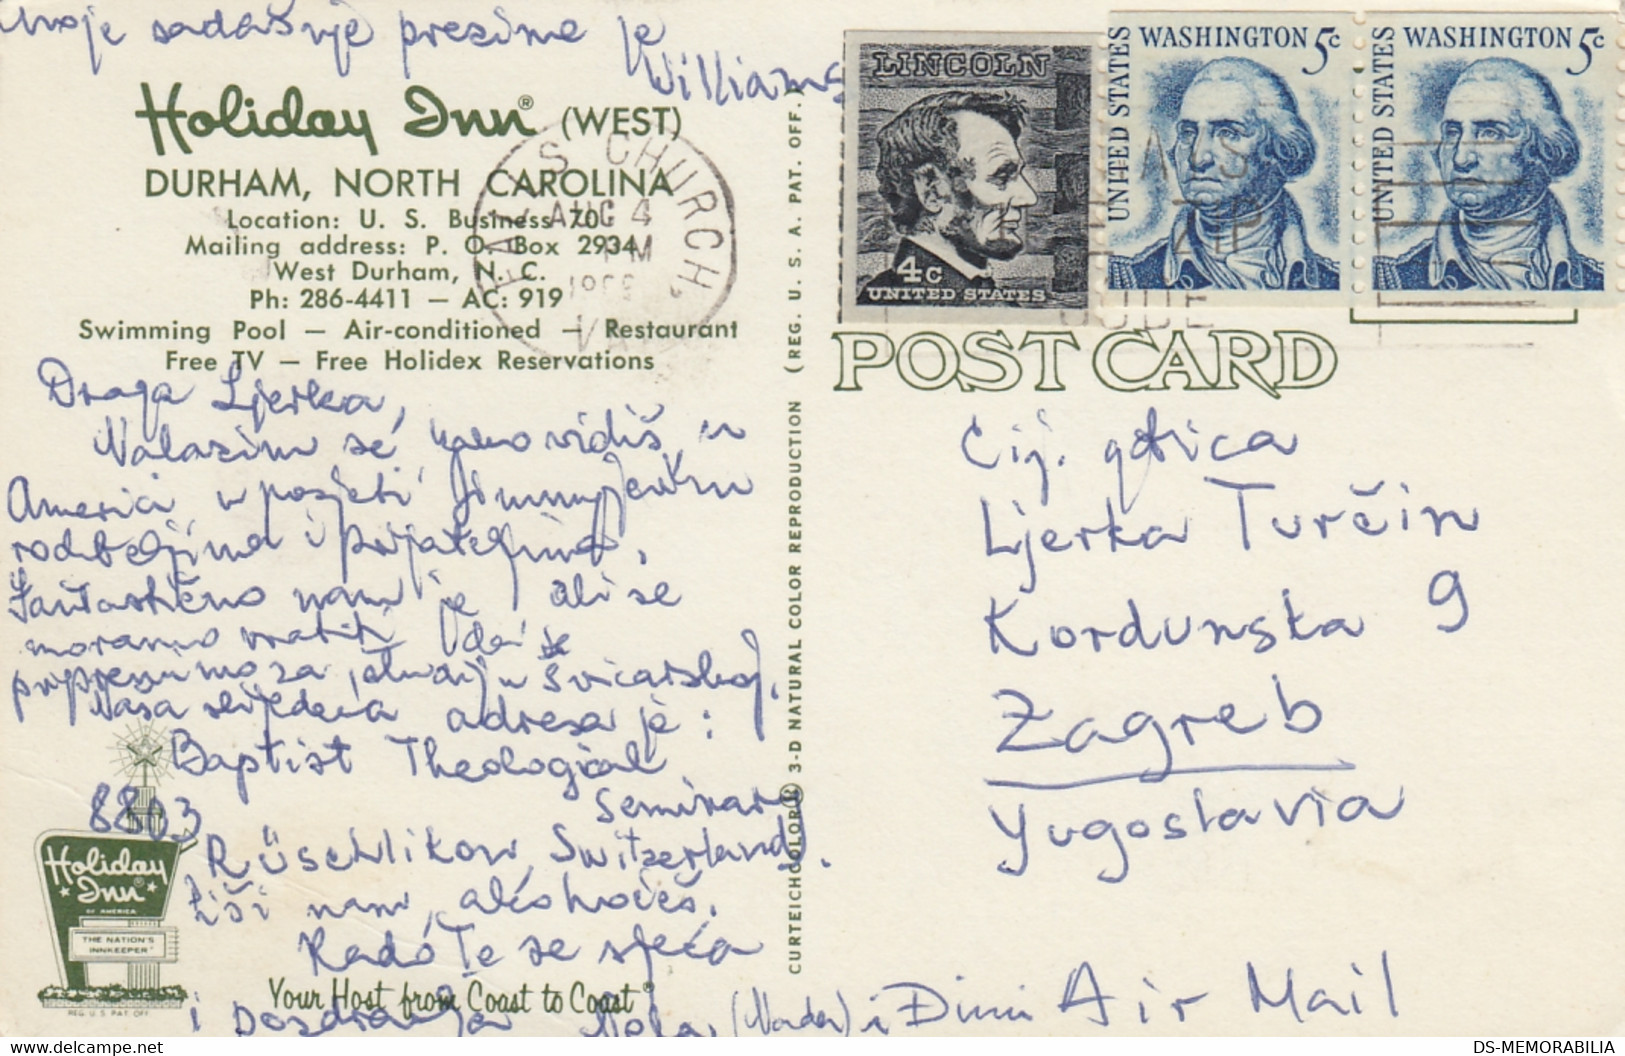 Moje sadašnje prezime je
Williams
Holiday Inn® (WEST)
DURHAM, NORTH CAROLINA
Location: U. S. Business 70
Mailing address: P. O. Box 2934
West Durham, N. C.
Ph: 286-4411 — AC: 919
Swimming Pool — Air-conditioned — Restaurant
Free TV — Free Holidex Reservations
Draga Ljerka,
Nalazim se, kako vidiš, u
Americi u posjeti
rodbini i prijateljima.
Fantastično nam je ali se
moramo vratiti
pripremimo za studij u Švicarskoj.
Naša slijedeća adresa je:
Baptist Theological
Seminary
8803
Rüschlikon, Switzerland.
Piši nam, ako hoćeš.
Rado Te se sjeća
i pozdravlja Nela (Nada) i Dini
Holiday
Inn®
OF AMERICA
THE NATION'S
INNKEEPER
REG. U.S. PAT. OFF.
Your Host from Coast to Coast®
CURTEICHCOLOR® 3-D NATURAL COLOR REPRODUCTION (REG. U. S. A. PAT. OFF.)
FALLS CHURCH,
AUG 4
PM
VA.
LINCOLN
4c
UNITED STATES
WASHINGTON 5c
UNITED STATES
WASHINGTON 5c
UNITED STATES
ZIP
CODE
POST CARD
Cij. gđica
Ljerka Turčin
Kordunska 9
Zagreb
Yugoslavia
Air Mail
DS-MEMORABILIA